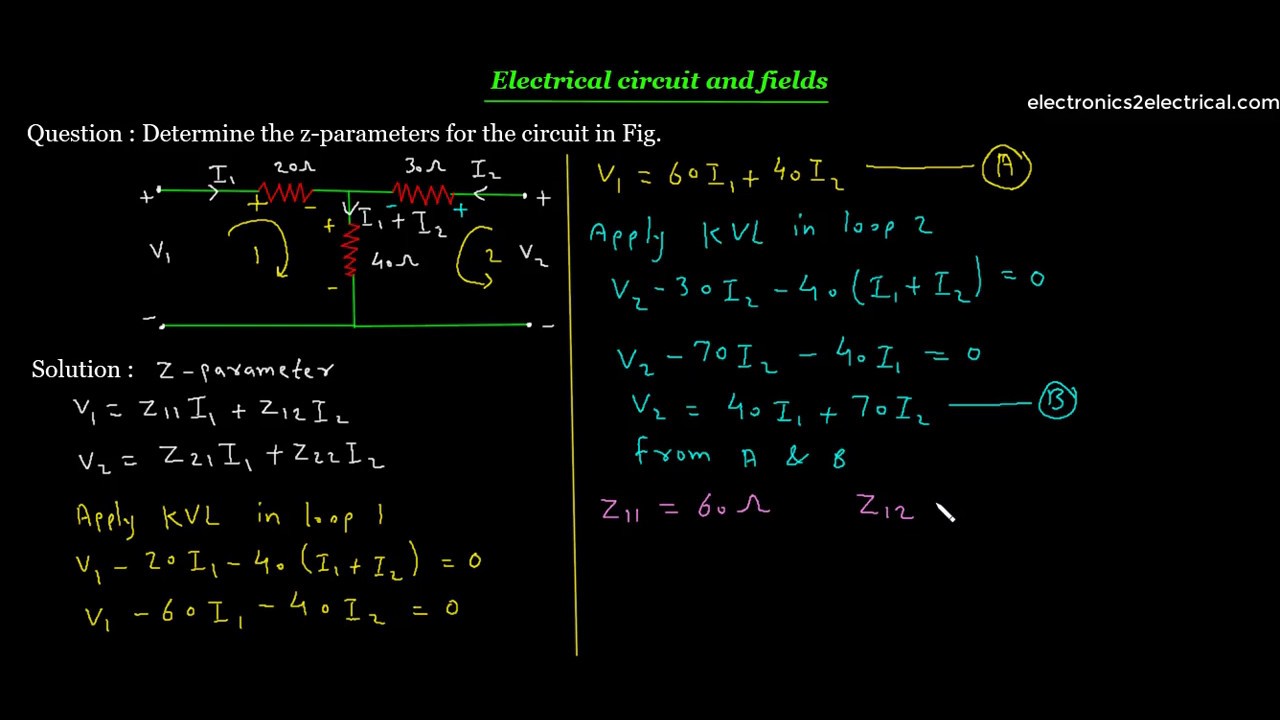 Electrical circuit and fields
electronics2electrical.com
Question : Determine the z-parameters for the circuit in Fig.
I₁ 20Ω 30Ω I₂
+ + - - + +
I₁ + I₂
+
V₁ 1 40Ω 2 V₂
-
- -
Solution : Z-parameter
V₁ = Z₁₁I₁ + Z₁₂I₂
V₂ = Z₂₁I₁ + Z₂₂I₂
Apply KVL in loop 1
V₁ - 20I₁ - 40(I₁ + I₂) = 0
V₁ - 60I₁ - 40I₂ = 0
V₁ = 60I₁ + 40I₂ —— A
Apply KVL in loop 2
V₂ - 30I₂ - 40(I₁ + I₂) = 0
V₂ - 70I₂ - 40I₁ = 0
V₂ = 40I₁ + 70I₂ —— B
from A & B
Z₁₁ = 60Ω Z₁₂